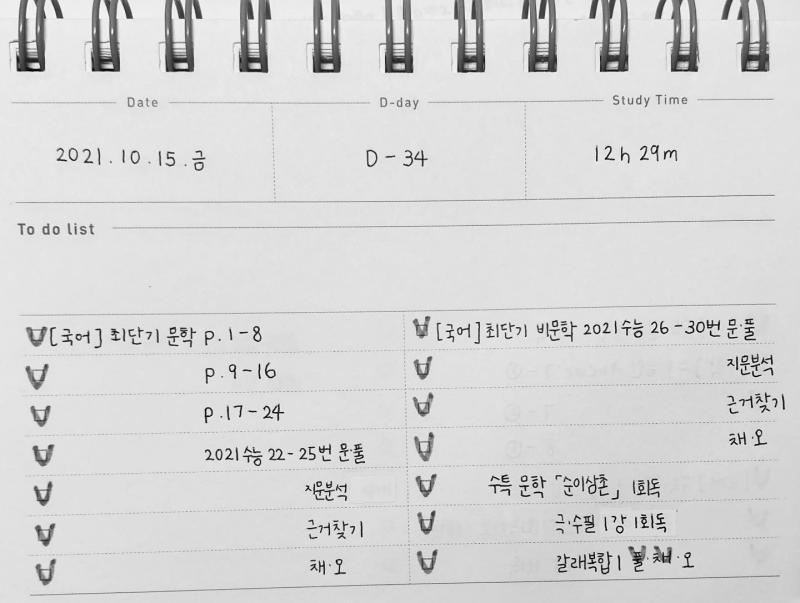 Date
D-day
Study Time
2021.10.15.금
D-34
12h 29m
To do list
[국어] 최단기 문학 p.1-8
p.9-16
p.17-24
2021수능 22-25번 문·풀
지문분석
근거찾기
채·오
[국어] 최단기 비문학 2021수능 26-30번 문·풀
지문분석
근거찾기
채·오
수특 문학 「순이삼촌」 1회독
극·수필 1강 1회독
갈래복합1 풀·채·오